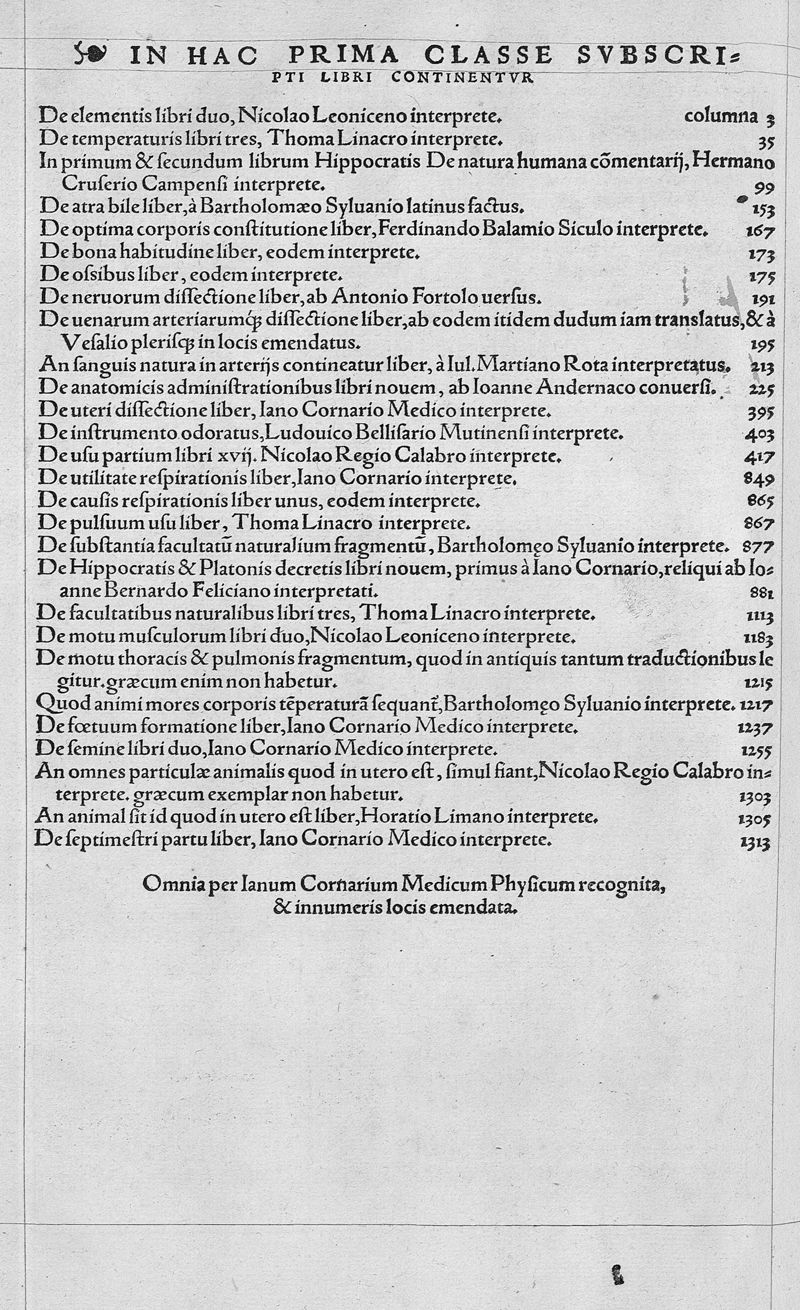 IN HAC PRIMA CLASSE SVBSCRI⸗
PTI LIBRI CONTINENTVR
De elementis libri duo, Nicolao Leoniceno interprete. columna 3
De temperaturis libri tres, Thoma Linacro interprete. 35
In primum & ſecundum librum Hippocratis De natura humana cõmentarij, Hermano
Cruſerio Campenſi interprete. 99
De atra bile liber, à Bartholomæo Syluanio latinus factus. 153
De optima corporis conſtitutione liber, Ferdinando Balamio Siculo interprete. 167
De bona habitudine liber, eodem interprete. 173
De oſsibus liber, eodem interprete. 175
De neruorum diſſectione liber, ab Antonio Fortolo uerſus. 191
De uenarum arteriarumq́ꝫ diſſectione liber, ab eodem itidem dudum iam translatus, & à
Veſalio pleriſqꝫ in locis emendatus. 195
An ſanguis natura in arterijs contineatur liber, à Iul. Martiano Rota interpretatus. 213
De anatomicis adminiſtrationibus libri nouem, ab Ioanne Andernaco conuerſi. 225
De uteri diſſectione liber, Iano Cornario Medico interprete. 395
De inſtrumento odoratus, Ludouico Belliſario Mutinenſi interprete. 403
De uſu partium libri xvij. Nicolao Regio Calabro interprete. 417
De utilitate reſpirationis liber, Iano Cornario interprete. 849
De cauſis reſpirationis liber unus, eodem interprete. 865
De pulſuum uſu liber, Thoma Linacro interprete. 867
De ſubſtantia facultatũ naturalium fragmentũ, Bartholomęo Syluanio interprete. 877
De Hippocratis & Platonis decretis libri nouem, primus à Iano Cornario, reliqui ab Io⸗
anne Bernardo Feliciano interpretati. 881
De facultatibus naturalibus libri tres, Thoma Linacro interprete. 1113
De motu muſculorum libri duo, Nicolao Leoniceno interprete. 1183
De motu thoracis & pulmonis fragmentum, quod in antiquis tantum traductionibus le
gitur. græcum enim non habetur. 1215
Quod animi mores corporis tẽperaturã ſequant᷑, Bartholomęo Syluanio interprete. 1217
De fœtuum formatione liber, Iano Cornario Medico interprete. 1237
De ſemine libri duo, Iano Cornario Medico interprete. 1255
An omnes particulæ animalis quod in utero eſt, ſimul fiant, Nicolao Regio Calabro in⸗
terprete. græcum exemplar non habetur. 1303
An animal ſit id quod in utero eſt liber, Horatio Limano interprete. 1305
De ſeptimeſtri partu liber, Iano Cornario Medico interprete. 1313
Omnia per Ianum Cornarium Medicum Phyſicum recognita,
& innumeris locis emendata.